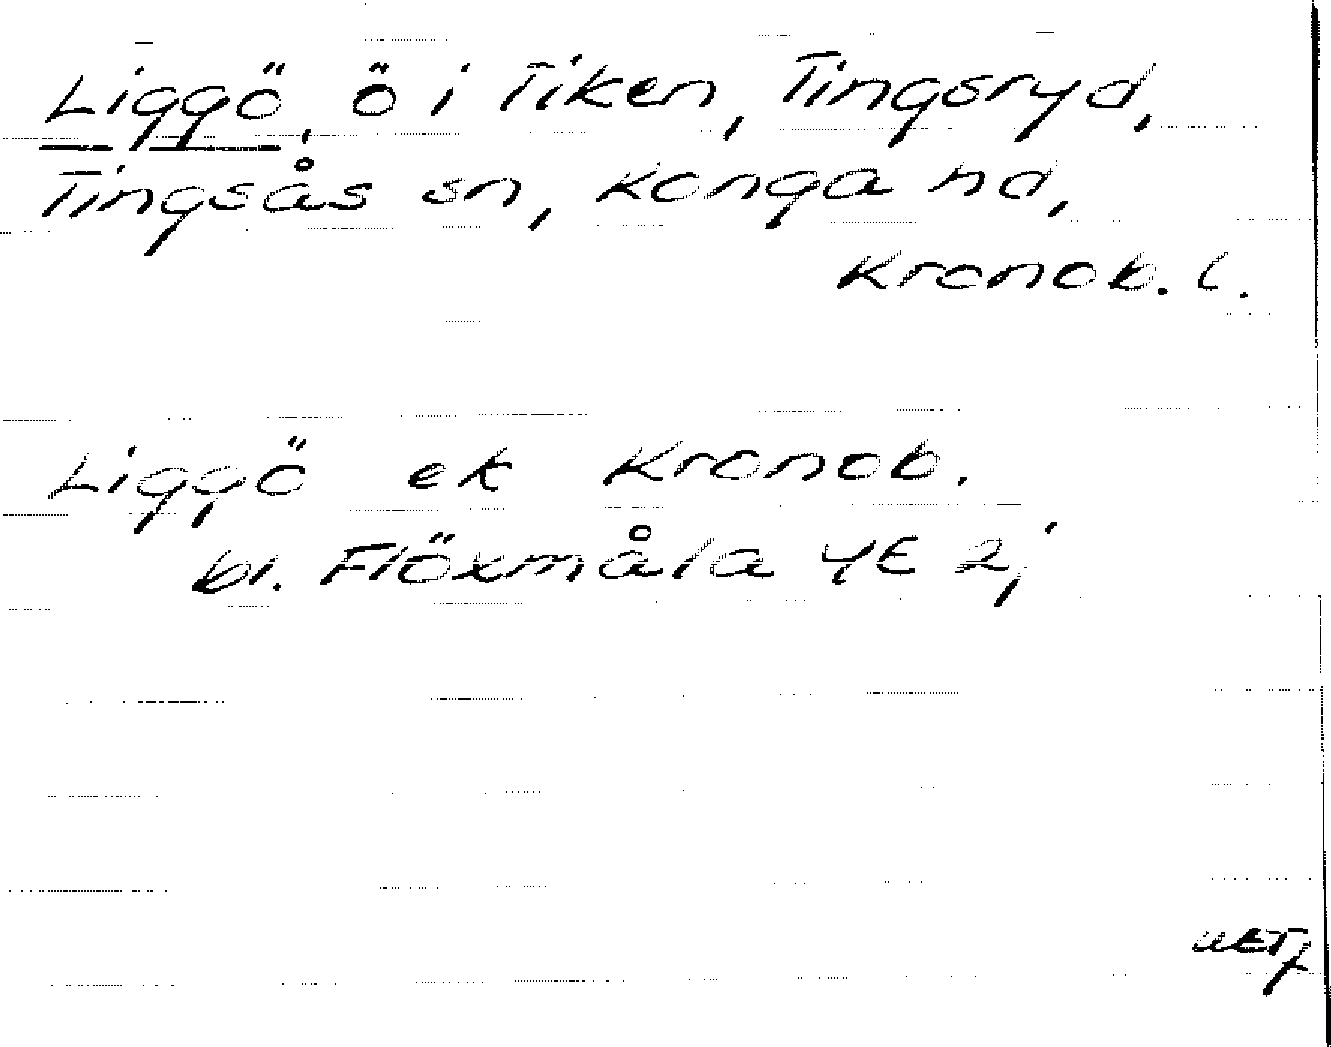 Liggö, ö i Tiken, Tingsryd,
Tingsås sn, Konga hd,
Kronob. l.
Liggö ek Kronob.
bl. Flöxmåla 4E 2j